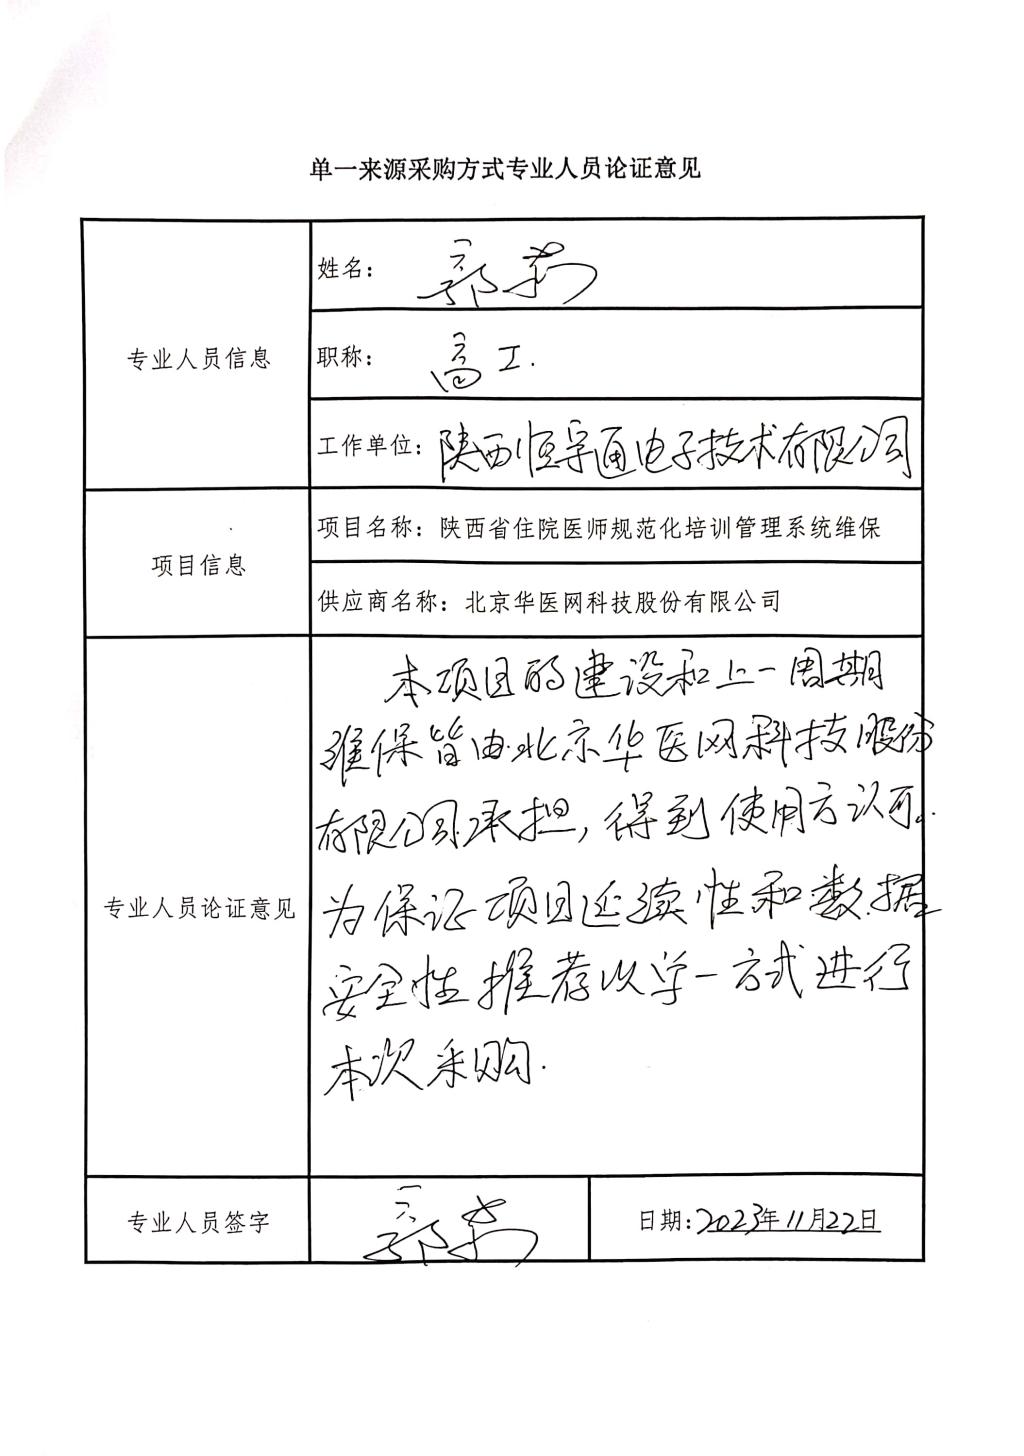 单一来源采购方式专业人员论证意见
专业人员信息
姓名：郭莉
职称：高工.
工作单位：陕西恒宇通电子技术有限公司
项目信息
项目名称：陕西省住院医师规范化培训管理系统维保
供应商名称：北京华医网科技股份有限公司
专业人员论证意见
本项目的建设和上一周期
维保皆由北京华医网科技股份
有限公司承担,得到使用方认可.
为保证项目延续性和数据
安全性推荐以单一方式进行
本次采购.
专业人员签字
郭莉
日期:2023年11月22日